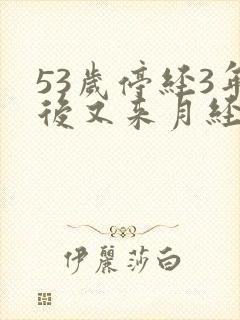 53歲停經3年
後又來月經
伊麗莎白